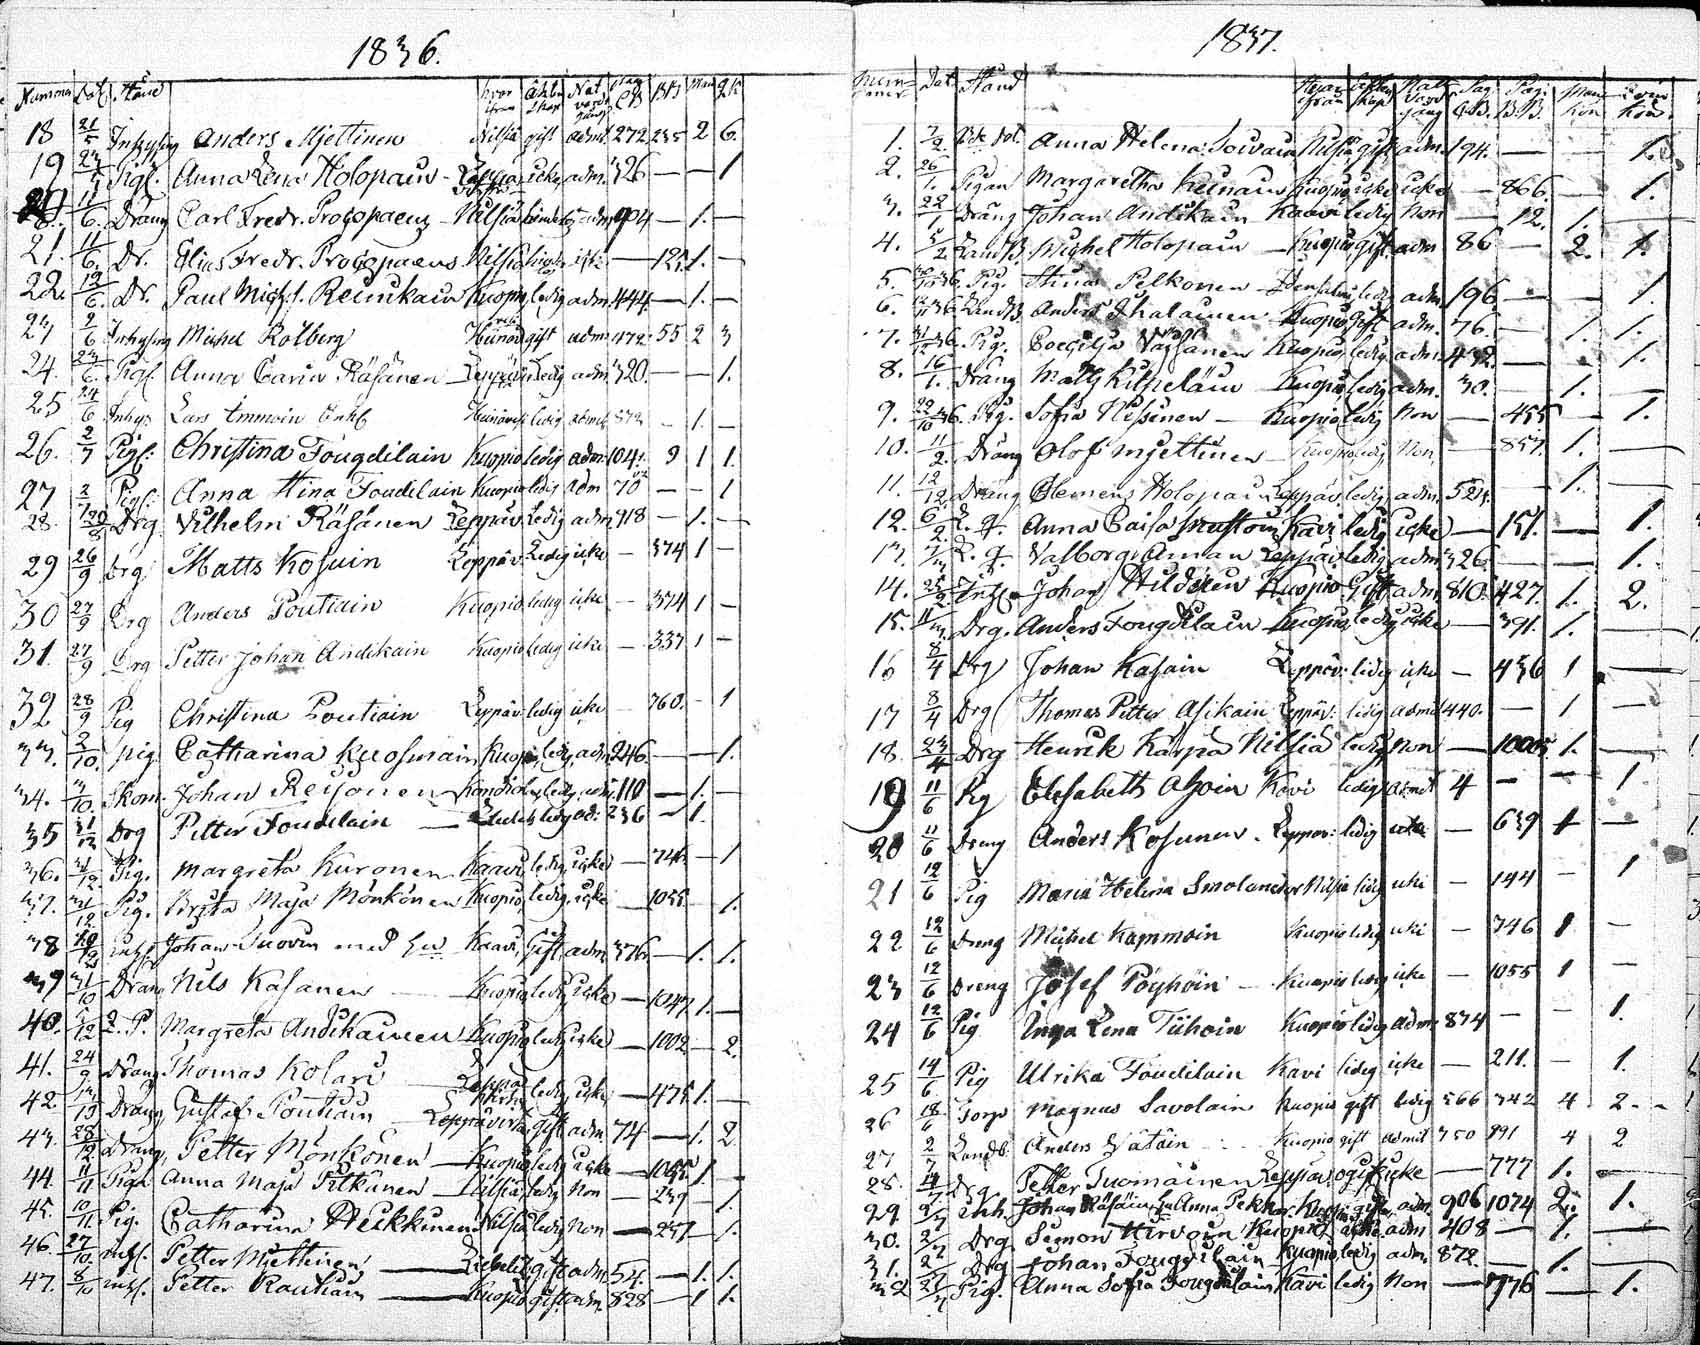 1836.
Nummer Dat. Stånd hvar ifrån Ächtenskap Nattvards gång Pag CB BB Man QK
18 21/5 Inhysing Anders Mjettinen Nilsiä gift admit. 272 235 2 6.
19 Pig. Anna Lena Holopain Leppä icke adm. 326 — — 1
20. 11/6. Dräng Carl Fredr. Procopaeus Nilsiä adm 904 — 1. —
21. 11/6. Dr. Elias Fredr. Procopaeus Nilsiä — 1. —
22. 12/6. Dr. Paul Mich. Reinikain Kuopio ledig adm. 444. — 1. —
23 2/6 Inhysing Michel Rolberg gift adm 55 2 3
24. 23/6. Pig. Anna Carin Räsänen Leppäv. Ledig adm. 320. — — 1.
25 24/6 Inhys Lars Immoin Enkl ledig admit 872 — 1. —
26. 2/7 Pig. Christina Fougdilain Kuopio ledig adm. 104. 9 1 1.
27 2/7 Pig. Anna Stina Foudilain Kuopio ledig adm 70 — — 1
28. 20/8 Drg Vilhelm Räsänen Leppäv. Ledig adm. 918 — 1. —
29 26/9 Drg Matts Kosuin Leppäv. Ledig icke — 374 1 —
30 27/9 Drg Anders Poutiain Kuopio ledig icke — 374 1 —
31. 27/9 Drg Petter Johan Andikain Kuopio ledig icke — 337 1 —
32 28/9 Pig Christina Poutiain Leppäv. ledig icke — 760. — 1
33. 2/10. pig Catharina Kuosmain Kuopio ledig adm 246. — — 1.
34. 3/10. Skom. Johan Reijonen ledig adm. 110 — 1. —
35 31/12 Drg Petter Foudelain — ledig ad: 236 — 1.
36. 31/12. Pig. Margreta Kuronen Kaavi ledig icke — 746 — 1
37. 31/12. Pig. Brita Maja Mönkönen Kuopio ledig. icke — 1055. — 1.
38 Johan Suovin med Hu Kaavi, Gift adm 376. — 1. 1.
39 31/10 Dräng Nils Kasanen — Kuopio ledig icke — 1047. 1. —
40. 5/12 Margreta Andikainen Kuopio ledig icke — 1002 — 2.
41. 24/9. Dräng Thomas Kolari Leppä virta ledig icke — 475 1. —
42. Dräng Gustaf Poutiain Leppävirta gift adm 74 — 1. 2
43. 28/12 Dräng Petter Mönkönen — Kuopio ledig icke — 1055. 1. —
44. 11/11 Piga Anna Maja Pitkänen — Nilsiä ledig Non — 239 — 1.
45. 10/11 Pig. Catharina Heikkinen Nilsiä ledig Non — 257 — 1.
46. 27/10. inhs. Petter Mjettinen — gift adm. 54. — 1. 1.
47. 8/10 inhs. Petter Rautiain — Kuopio gift adm. 828 — 1 1.
1837.
Nummer Dat Stånd Hvar ifrån Ächtenskap Nattvards gång Pag. C.B. Pag. B.B. Man kön Qvin kön
1. 7/2. Anna Helena Soivain Nilsiä gift adm. 194. — — 1.
2. 26/1. Pigan Margaretha Keinain Kuopio icke icke — 866. — 1.
3. 22/1. Dräng Johan Andikain Kaavi ledig Non — 12. 1.
4. 5/2. LandB. Michel Holopain — Kuopio gift adm 86 — 2. 1.
5. Pig. Stina Pelkonen Idensalmi ledig adm 196 — — 1
6. LandB. Anders Ihalainen Kuopio Gift adm. 76. — 1. 1.
7. Pig. Coecilja Kuopio, ledig adm. 432. — — 1.
8. 16/1. Dräng Matts Kilpeläin Kuopio ledig adm. 30. — 1. —
9. Pig. Sofia Nissinen — Kuopio ledig Non — 455 — 1.
10. 11/2. Dräng Olof Mjettinen Kuopio ledig Non — 857. 1. —
11. 12/12 Dräng Clemens Holopain Leppäv. ledig adm. 521. — 1. —
12. 6/2. Anna Caisa Kavi ledig icke — 151. — 1.
13. Valborg Aman Leppäv. ledig adm 326. — — 1.
14. 25/2 Inh. Johan Hildén Kuopio Gift adm 810. 427. 1. 2.
15. 11/3. Drg. Anders Fougdilain Kuopio, ledig icke — 391. 1. —
16 8/4 Drg Johan Kasain Leppäv: ledig icke — 436 1 —
17 8/4 Drg Thomas Petter Asikain Leppäv: ledig admit 440. — 1 —
18. 23/4 Drg Henrik Karpa Nilsiä ledig Non — 1. —
19 11/6 Pig Elisabeth Kavi ledig admit 4 — — 1
20 11/6 Dreng Anders Kosunen. Leppäv: ledig icke — 639 1 —
21 12/6 Pig Maria Helena Smolander Nilsiä ledig icke — 144 — 1
22 12/6 Dreng Michel Kammoin Kuopio ledig icke — 746 1 —
23 12/6 Dreng Josef Pöyhöin — Kuopio ledig icke — 1055 1 —
24 12/6 Pig Inga Lena Tiihoin Kuopio ledig adm: 874 — — 1.
25 14/6 Pig Ulrika Foudilain Kavi ledig icke — 211. — 1.
26 18/6 Torp Magnus Savolain Kuopio gift ledig 566 342 4 2.
27 2/7 Landb. Anders Vätäin Kuopio gift admit 750 891 4 2
28. 4/7 Drg Petter Tuomainen Leppäv. ogift icke — 777 1. —
29. 2/7 Inh. Johan Räsäin Hu Anna Pekkar Kuopio gift adm. 906 1074 2. 1.
30. 2/7 Drg. Simon Hirvoin Kuopio adm 408 — 1. —
31. 2/7 Drg Johan Fougdilain Kuopio ledig adm. 872. — 1. —
32 Pig. Anna Sofia Fougdilain Kavi ledig Non — 776 — 1.